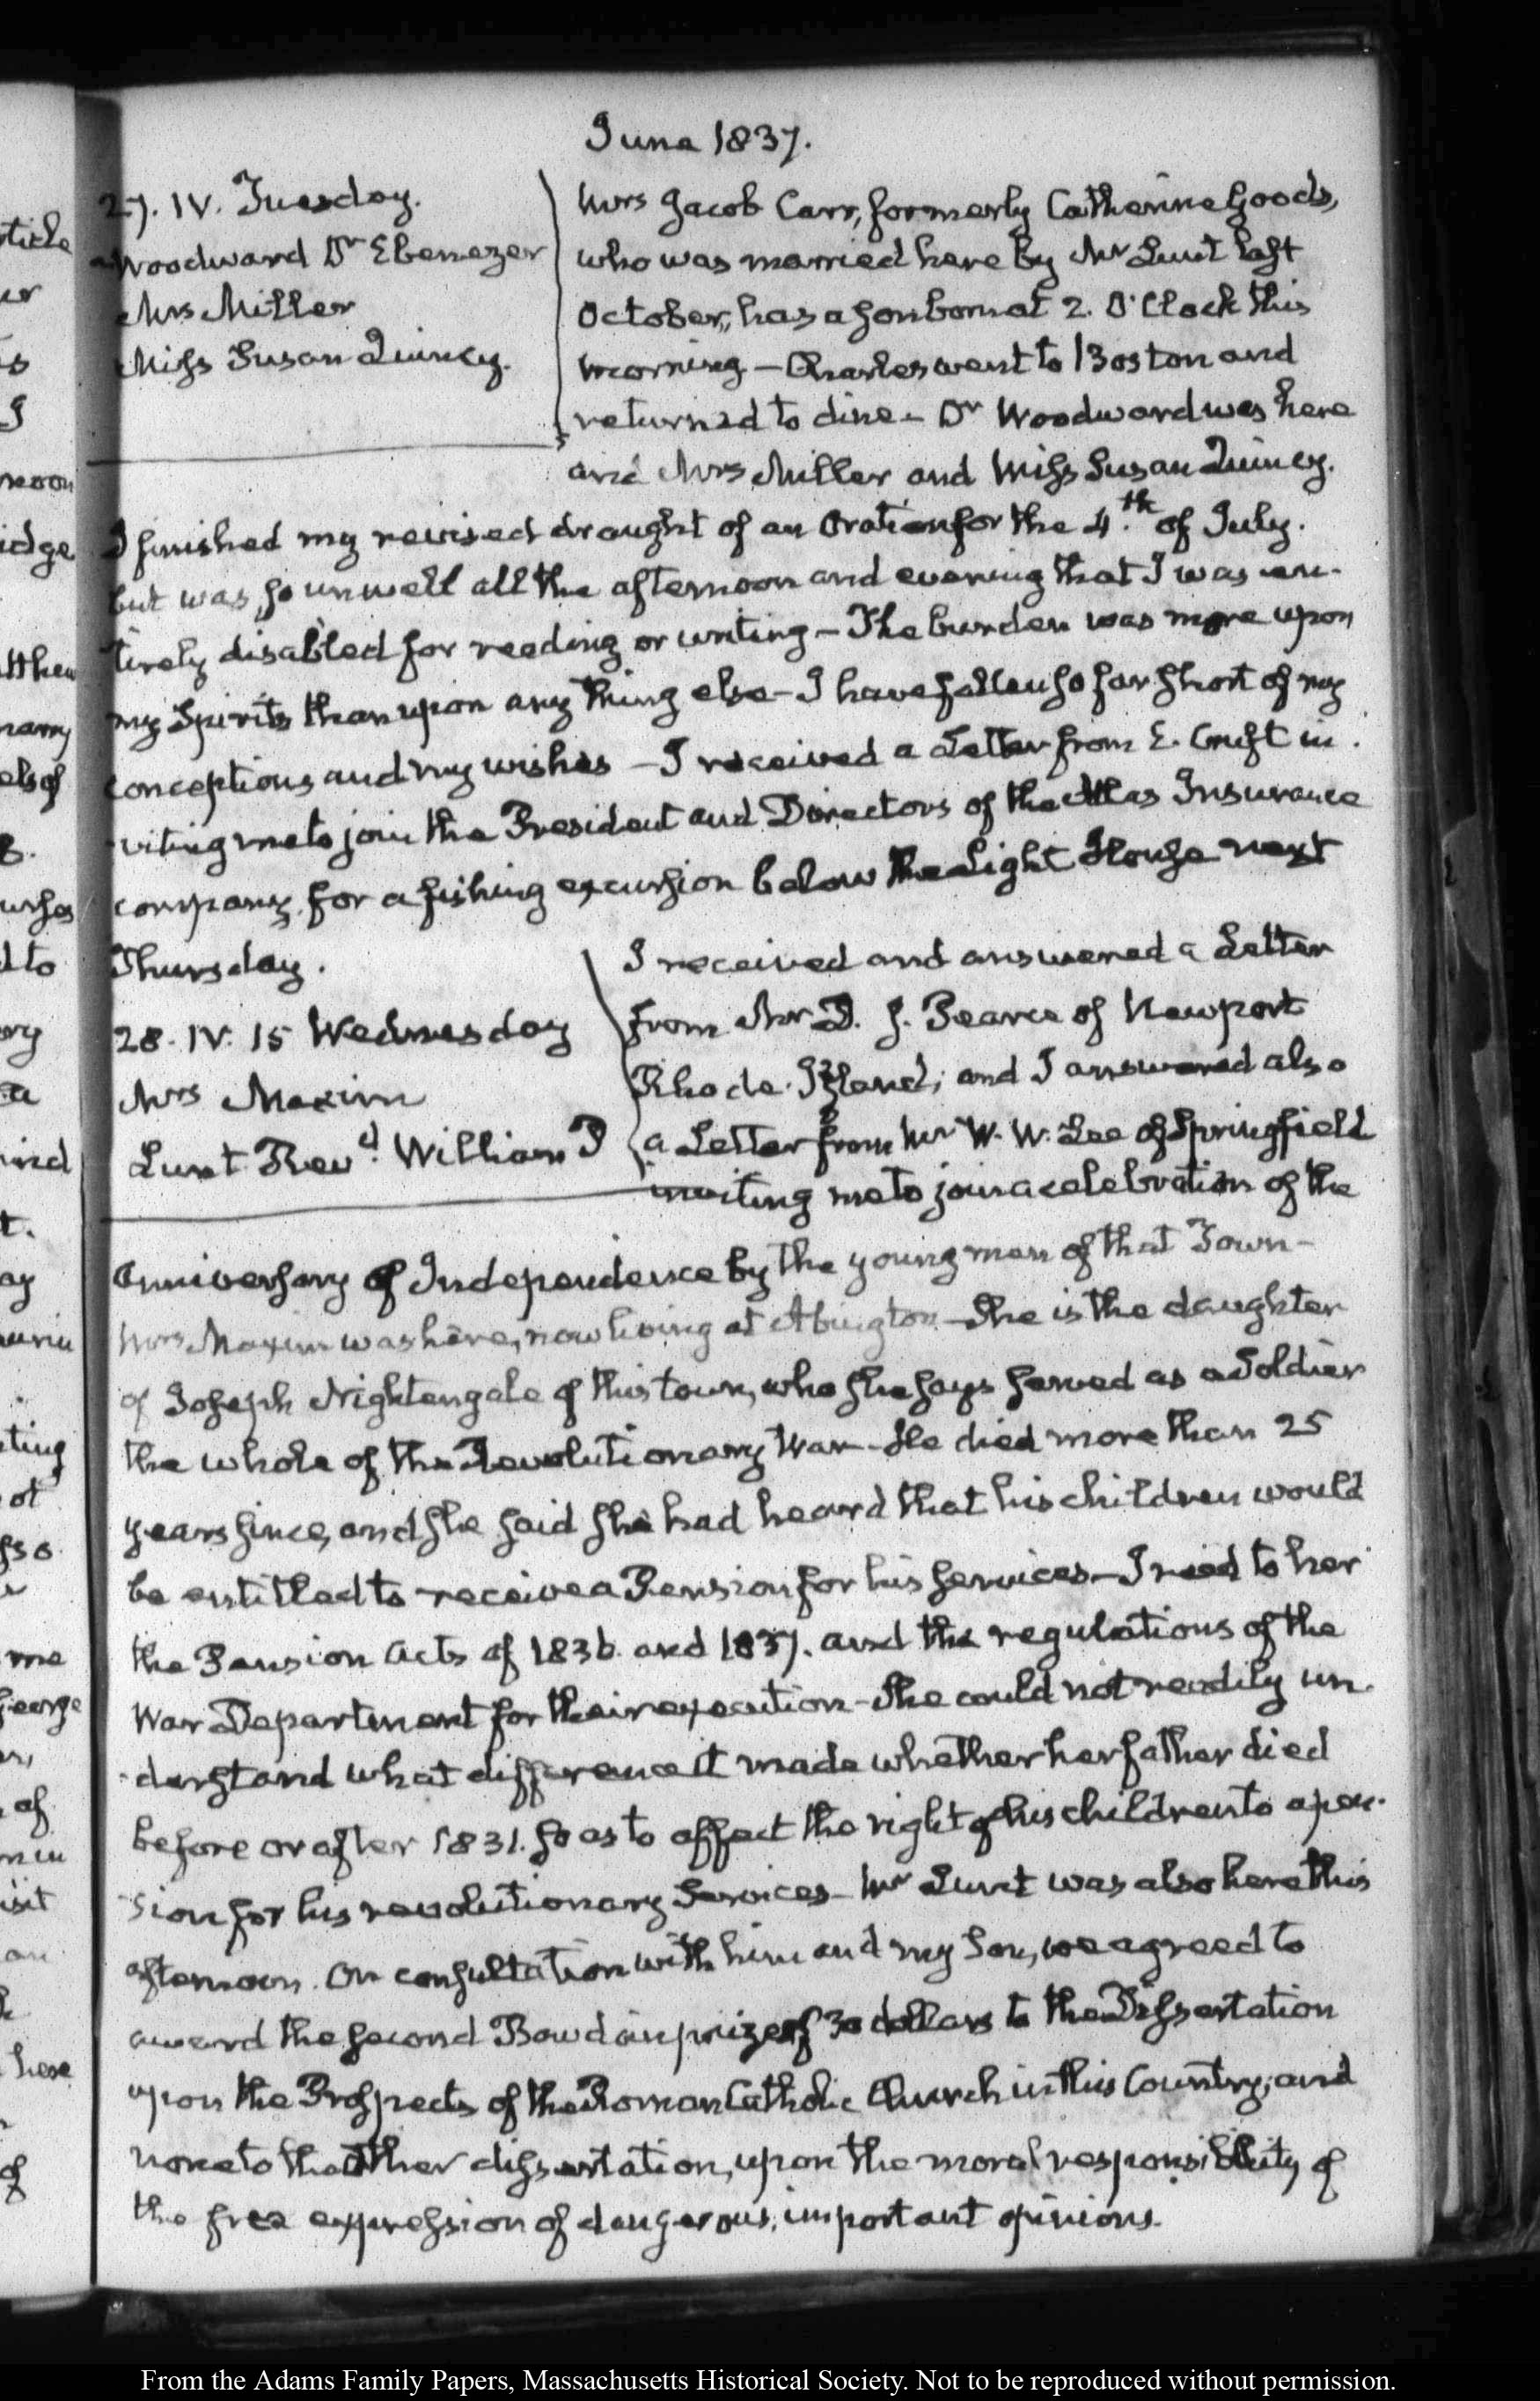 June 1837.
27. IV. Tuesday.
Woodward Dr Ebenezer
Mrs Miller
Miss Susan Quincy.
Mrs Jacob Carr, formerly Catherine Goods,
who was married here by Mr Lunt last
October, has a son born at 2. O'Clock this
morning – Charles went to Boston and
returned to dine – Dr Woodward was here
and Mrs Miller and Miss Susan Quincy.
I finished my revised draught of an Oration for the 4.th of July.
but was so unwell all the afternoon and evening that I was en-
tirely disabled for reading or writing – The burden was more upon
my Spirits than upon any thing else – I have fallen so far short of my
conceptions and my wishes – I received a Letter from E. Cruft in-
viting me to join the President and Directors of the Atlas Insurance
company for a fishing excursion below the Light House next
Thursday.
28. IV. 15 Wednesday
Mrs Maxim
Lunt Revd. William P
I received and answered a Letter
from Mr D. J. Pearce of Newport
Rhode-Island; and I answered also
a Letter from Mr W. W. Lee of Springfield
inviting me to join a celebration of the
Anniversary of Independence by the young men of that Town –
Mrs Maxim was here, now living at Abington – She is the daughter
of Joseph Nightengale of this town, who she says served as a Soldier
the whole of the Revolutionary War – He died more than 25
years since, and she said she had heard that his children would
be entitled to receive a Pension for his services – I read to her
the Pension Acts of 1836 and 1837. and the regulations of the
War Department for their execution – She could not readily un-
derstand what difference it made whether her father died
before or after 1831. so as to affect the right of his children to a pen-
sion for his revolutionary Services – Mr Lunt was also here this
afternoon. On consultation with him and my Son, we agreed to
award the second Bowdoin prize of 30 dollars to the Dissertation
upon the Prospects of the Roman Catholic Church in this Country; and
none to the other dissertation, upon the moral responsibility of
the free expression of dangerous, important opinions.
From the Adams Family Papers, Massachusetts Historical Society. Not to be reproduced without permission.